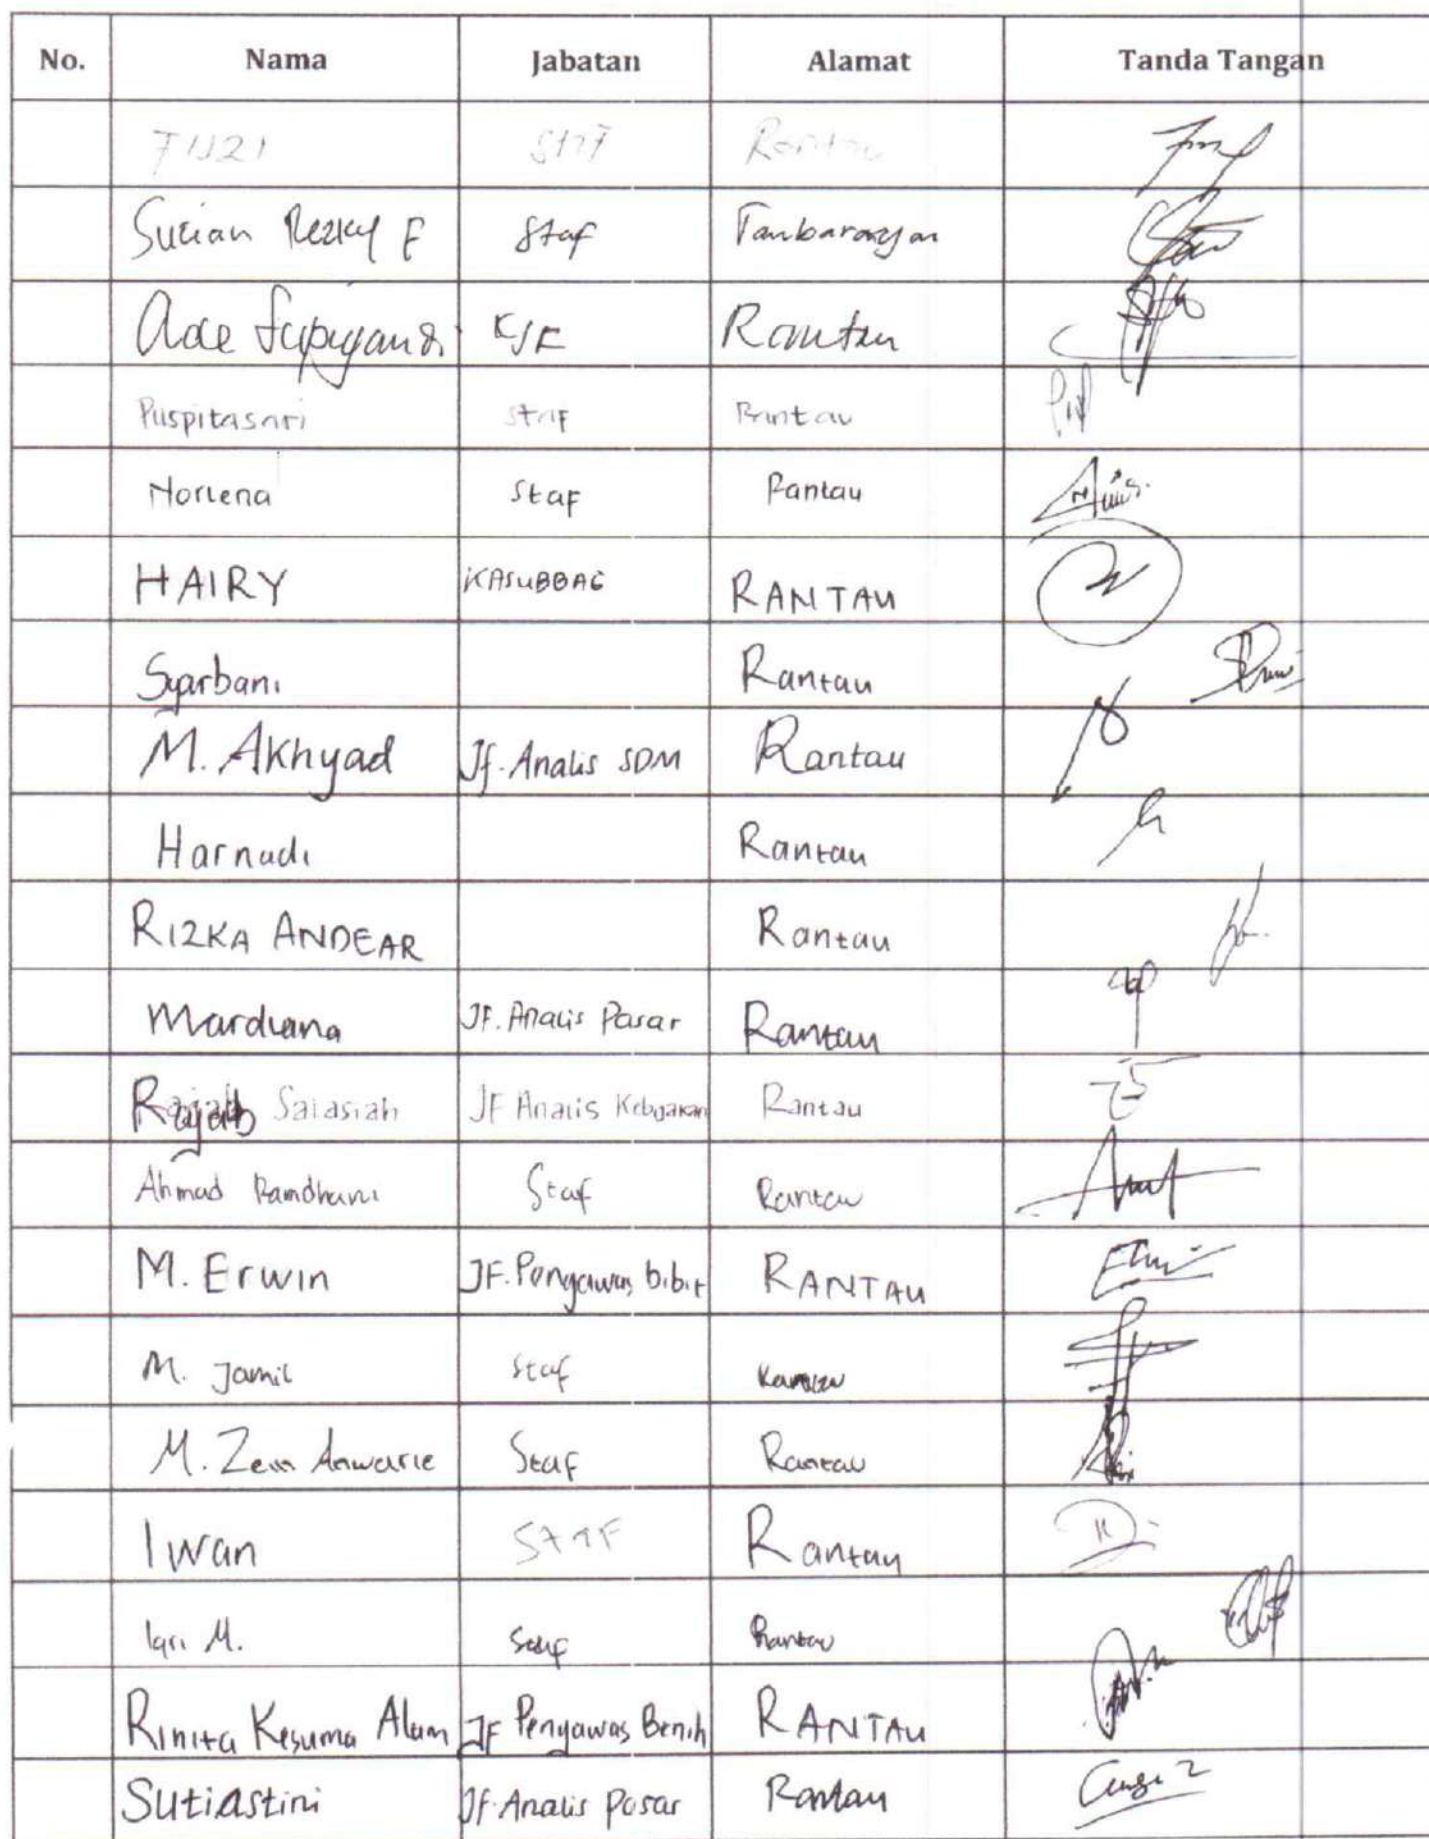 No. Nama Jabatan Alamat Tanda Tangan
Staf Rantau
Sucian Rezky F Staf Tambarangan
Ade Supiyandi KJF Rantau
Puspitasari Staf Rantau
Norlena Staf Rantau
HAIRY KASUBBAG RANTAU
Syarbani Rantau
M. Akhyad Jf. Analis SDM Rantau
Harnadi Rantau
RIZKA ANDEAR Rantau
Mardiana JF. Analis Pasar Rantau
Rajab Salasiah JF Analis Kebijakan Rantau
Ahmad Ramdhani Staf Rantau
M. Erwin JF. Pengawas bibit RANTAU
M. Jamil Staf Rantau
M. Zein Anwarie Staf Rantau
Iwan STAF Rantau
M. Staf Rantau
Rinita Kesuma Alam JF Pengawas Benih RANTAU
Sutiastini Jf. Analis Pasar Rantau